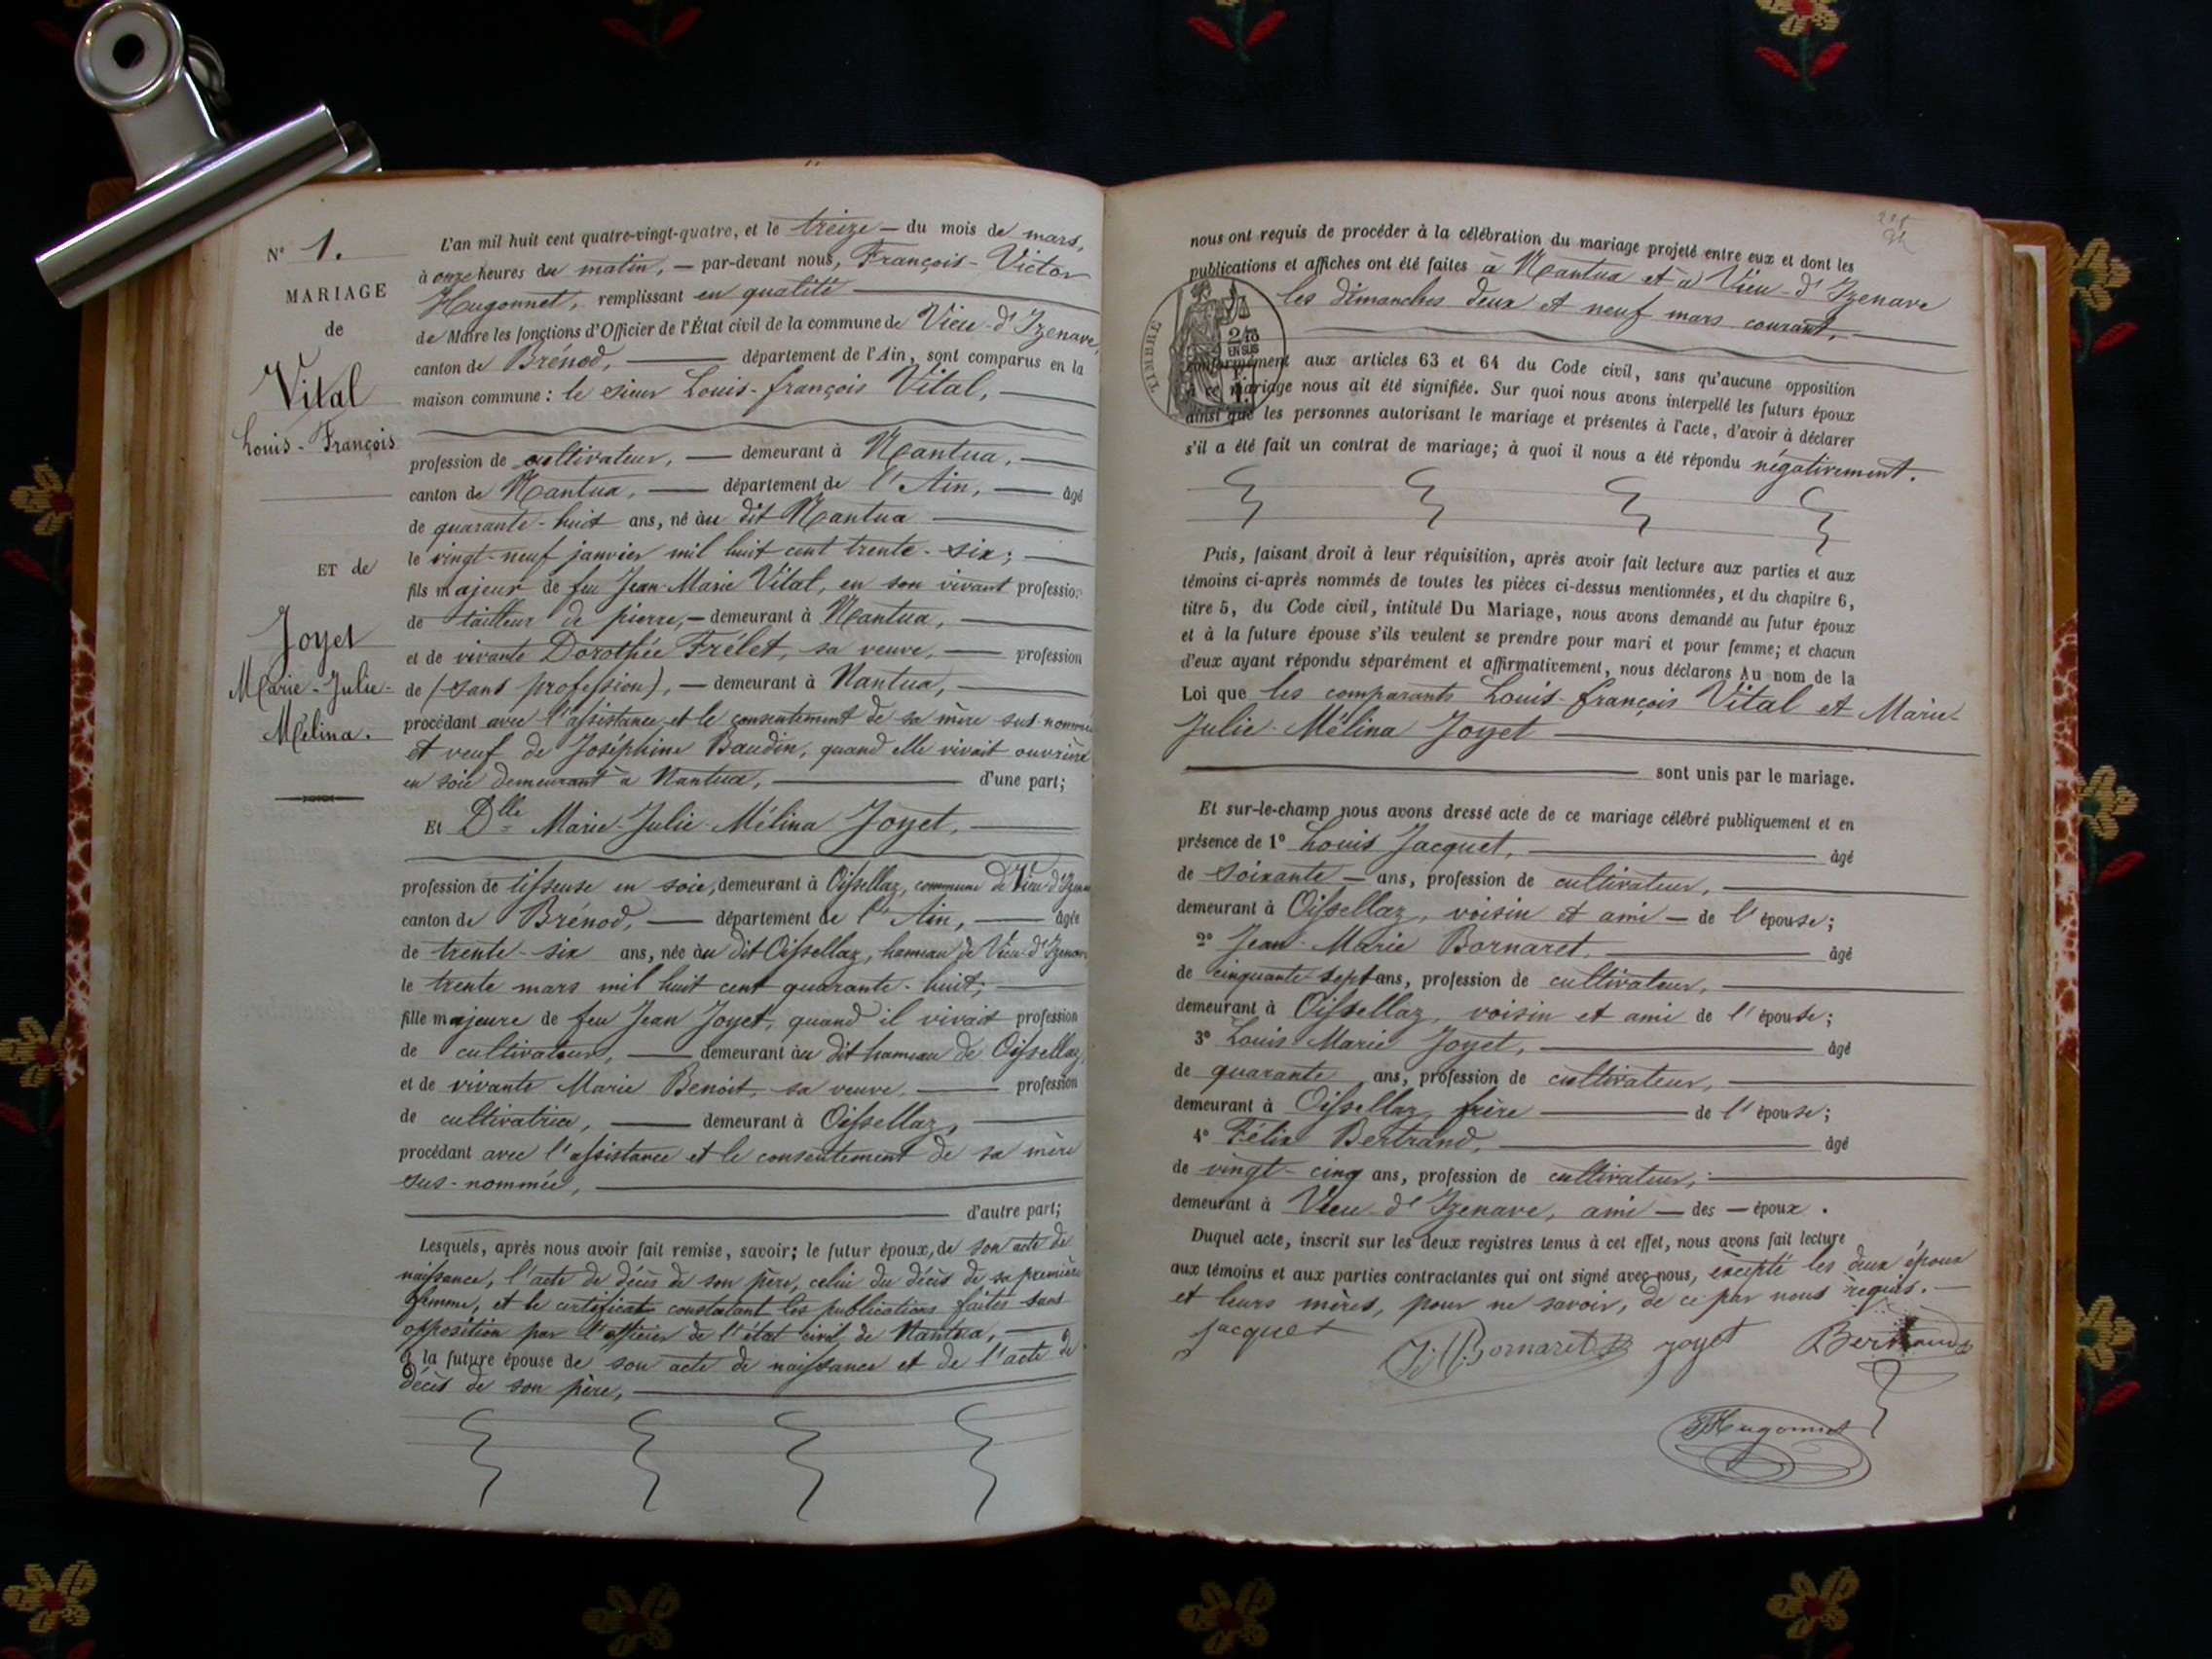 N° 1.
MARIAGE
de
Vital
Louis-François
ET de
Joyet
Marie-Julie-
Mélina.
L'an mil huit cent quatre-vingt-quatre, et le treize — du mois de mars,
à onze heures du matin, — par-devant nous, François-Victor
Hugonnet, remplissant en qualité
de Maire les fonctions d'Officier de l'État civil de la commune de Vieu-d'Izenave,
canton de Brénod, — département de l'Ain, sont comparus en la
maison commune : le sieur Louis-françois Vital,
profession de cultivateur, — demeurant à Nantua,
canton de Nantua, — département de l'Ain, — âgé
de quarante-huit ans, né au dit Nantua
le vingt-neuf janvier mil huit cent trente-six;
fils majeur de feu Jean-Marie Vital, en son vivant profession
de tailleur de pierre, — demeurant à Nantua,
et de vivante Dorothée Frélet, sa veuve, — profession
de (sans profession), — demeurant à Nantua,
procédant avec l'assistance et le consentement de sa mère sus-nommée
et veuf de Joséphine Baudin, quand elle vivait ouvrière
en soie demeurant à Nantua, — d'une part;
Et Dlle Marie-Julie-Mélina Joyet,
profession de tisseuse en soie, demeurant à Oissellaz, commune de Vieu-d'Izenave
canton de Brénod, — département de l'Ain, — âgée
de trente-six ans, née au dit Oissellaz, hameau de Vieu-d'Izenave
le trente mars mil huit cent quarante-huit;
fille majeure de feu Jean Joyet, quand il vivait profession
de cultivateur, — demeurant au dit hameau de Oissellaz,
et de vivante Marie Benoit, sa veuve, — profession
de cultivatrice, — demeurant à Oissellaz,
procédant avec l'assistance et le consentement de sa mère
sus-nommée,
d'autre part;
Lesquels, après nous avoir fait remise, savoir; le futur époux, de son acte de
naissance, l'acte de décès de son père, celui du décès de sa première
femme, et le certificat constatant les publications faites sans
opposition par l'officier de l'état civil de Nantua, —
et la future épouse de son acte de naissance et de l'acte de
décès de son père,
nous ont requis de procéder à la célébration du mariage projeté entre eux et dont les
publications et affiches ont été faites à Nantua et à Vieu-d'Izenave
les dimanches deux et neuf mars courant,
TIMBRE
2/10
EN SUS
conformément aux articles 63 et 64 du Code civil, sans qu'aucune opposition
à ce mariage nous ait été signifiée. Sur quoi nous avons interpellé les futurs époux
ainsi que les personnes autorisant le mariage et présentes à l'acte, d'avoir à déclarer
s'il a été fait un contrat de mariage; à quoi il nous a été répondu négativement.
Puis, faisant droit à leur réquisition, après avoir fait lecture aux parties et aux
témoins ci-après nommés de toutes les pièces ci-dessus mentionnées, et du chapitre 6,
titre 5, du Code civil, intitulé Du Mariage, nous avons demandé au futur époux
et à la future épouse s'ils veulent se prendre pour mari et pour femme; et chacun
d'eux ayant répondu séparément et affirmativement, nous déclarons Au nom de la
Loi que les comparants Louis-françois Vital et Marie-
Julie-Mélina Joyet
sont unis par le mariage.
Et sur-le-champ nous avons dressé acte de ce mariage célébré publiquement et en
présence de 1° Louis Jacquet, — âgé
de soixante — ans, profession de cultivateur,
demeurant à Oissellaz, voisin et ami — de l'épouse;
2° Jean-Marie Bornaret, — âgé
de cinquante-sept ans, profession de cultivateur,
demeurant à Oissellaz, voisin et ami de l'épouse;
3° Louis-Marie Joyet, — âgé
de quarante ans, profession de cultivateur,
demeurant à Oissellaz, frère — de l'épouse;
4° Félix Bertrand, — âgé
de vingt-cinq ans, profession de cultivateur,
demeurant à Vieu-d'Izenave, ami — des — époux.
Duquel acte, inscrit sur les deux registres tenus à cet effet, nous avons fait lecture
aux témoins et aux parties contractantes qui ont signé avec nous, excepté les deux époux
et leurs mères, pour ne savoir, de ce par nous requis. —
jacquet J M Bornaret joyet Bertrand
Hugonnet